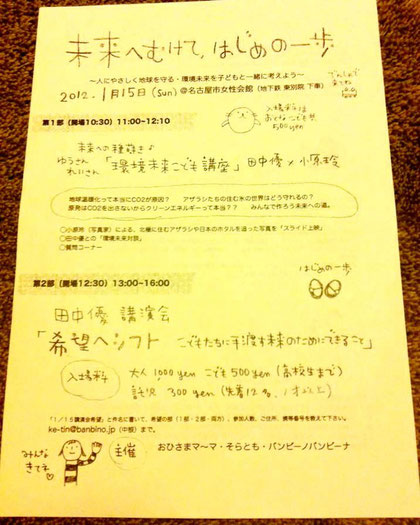 未来へむけて,はじめの一歩
〜人にやさしく地球を守る・環境未来を子どもと一緒に考えよう〜
2012.1月15日(Sun) @名古屋市女性会館(地下鉄 東別院 下車)
でんしゃで
きてね
入場料は
おとな こども共
500yen
第1部(開場10:30) 11:00~12:10
未来への種蒔き♪
ゆうさん
れいさん
「環境未来こども講座」田中優×小原玲
地球温暖化って本当にCO2が原因? アザラシたちの住む氷の世界はどう守れるの?
原発はCO2を出さないからクリーンエネルギーって本当?? みんなで作ろう未来への道。
○小原玲(写真家)による、北極に住むアザラシや日本のホタルを追った写真を「スライド上映」
○田中優との「環境未来対談」
○質問コーナー
はじめの一歩
第2部(開場12:30) 13:00~16:00
田中優 講演会
「希望へシフト こどもたちに手渡す未来のためにできること」
入場料 大人 1,000 yen こども 500 yen (高校生まで)
託児 300 yen (先着12名、1才以上)
「1/15講演会希望」と件名に書いて、希望の部(1部・2部・両方)、参加人数、ご住所、携帯番号を教えて下さい。
ke-tin@banbino.jp(中根)まで。
みんな
きてネ
主催 おひさまマ〜マ・そらとも・バンビーノバンビーナ